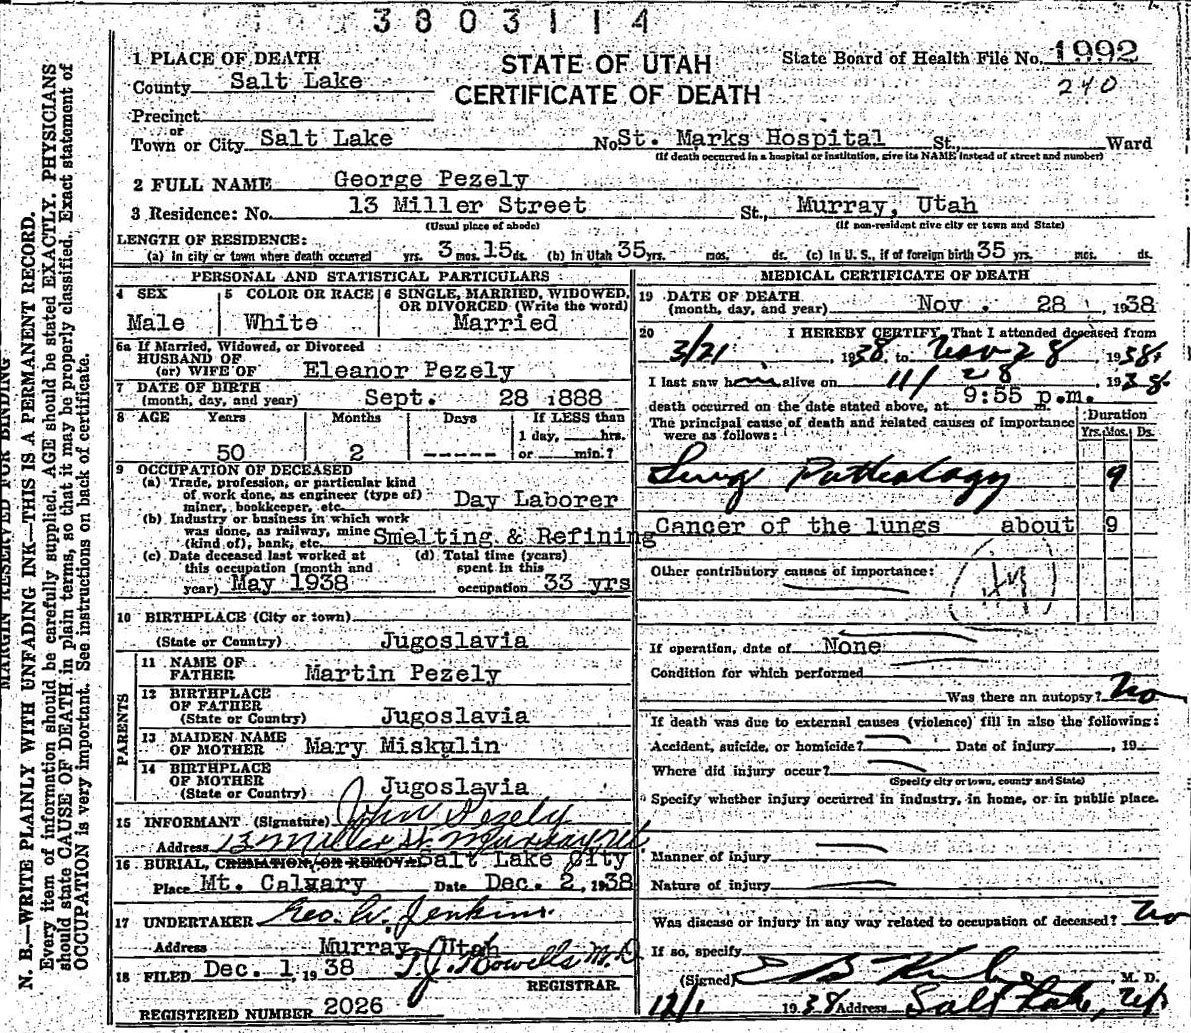 3803114
1 PLACE OF DEATH
STATE OF UTAH
State Board of Health File No. 1992
County Salt Lake
CERTIFICATE OF DEATH
240
Precinct
or
Town or City Salt Lake No St. Marks Hospital St., Ward
(If death occurred in a hospital or institution, give its NAME instead of street and number)
2 FULL NAME George Pezely
3 Residence: No. 13 Miller Street St., Murray, Utah
(Usual place of abode) (If non-resident give city or town and State)
LENGTH OF RESIDENCE:
(a) In city or town where death occurred yrs. 3 mos. 15 ds. (b) In Utah 35 yrs. mos. ds. (c) In U. S., if of foreign birth 35 yrs. mos. ds.
PERSONAL AND STATISTICAL PARTICULARS
4 SEX 5 COLOR OR RACE 6 SINGLE, MARRIED, WIDOWED, OR DIVORCED (Write the word)
Male White Married
6a If Married, Widowed, or Divorced
HUSBAND OF
(or) WIFE OF Eleanor Pezely
7 DATE OF BIRTH
(month, day, and year) Sept. 28 1888
8 AGE Years Months Days If LESS than
1 day, hrs.
50 2 ----- or min.?
9 OCCUPATION OF DECEASED
(a) Trade, profession, or particular kind
of work done, as engineer (type of)
miner, bookkeeper, etc. Day Laborer
(b) Industry or business in which work
was done, as railway, mine
(kind of), bank, etc. Smelting & Refining
(c) Date deceased last worked at (d) Total time (years)
this occupation (month and spent in this
year) May 1938 occupation 33 yrs
10 BIRTHPLACE (City or town)
(State or Country) Jugoslavia
PARENTS
11 NAME OF
FATHER Martin Pezely
12 BIRTHPLACE
OF FATHER
(State or Country) Jugoslavia
13 MAIDEN NAME
OF MOTHER Mary Miskulin
14 BIRTHPLACE
OF MOTHER
(State or Country) Jugoslavia
15 INFORMANT (Signature) John Pezely
Address 13 Miller St. Murray Ut
16 BURIAL, CREMATION, OR REMOVAL Salt Lake City
Place Mt. Calvary Date Dec. 2, 1938
17 UNDERTAKER Geo. W. Jenkins
Address Murray, Utah
18 FILED Dec. 1, 1938 T. J. Howells M.D.
REGISTRAR
REGISTERED NUMBER 2026
MEDICAL CERTIFICATE OF DEATH
19 DATE OF DEATH
(month, day, and year) Nov. 28, 1938
20 I HEREBY CERTIFY, That I attended deceased from
3/21, 1938, to Nov 28 1938.
I last saw him alive on 11/28, 1938.
death occurred on the date stated above, at 9:55 p.m. m.
The principal cause of death and related causes of importance
were as follows:
Duration
Yrs. Mos. Ds.
Lung Pathology 9
Cancer of the lungs about 9
Other contributory causes of importance:
If operation, date of None
Condition for which performed
Was there an autopsy? No
If death was due to external causes (violence) fill in also the following:
Accident, suicide, or homicide? Date of injury , 19
Where did injury occur?
(Specify city or town, county and State)
Specify whether injury occurred in industry, in home, or in public place.
Manner of injury
Nature of injury
Was disease or injury in any way related to occupation of deceased? No
If so, specify
(Signed) M. D.
12/1 1938 Address Salt Lake, Ut
MARGIN RESERVED FOR BINDING
N. B.—WRITE PLAINLY WITH UNFADING INK—THIS IS A PERMANENT RECORD.
Every item of information should be carefully supplied. AGE should be stated EXACTLY. PHYSICIANS
should state CAUSE OF DEATH in plain terms, so that it may be properly classified. Exact statement of
OCCUPATION is very important. See instructions on back of certificate.